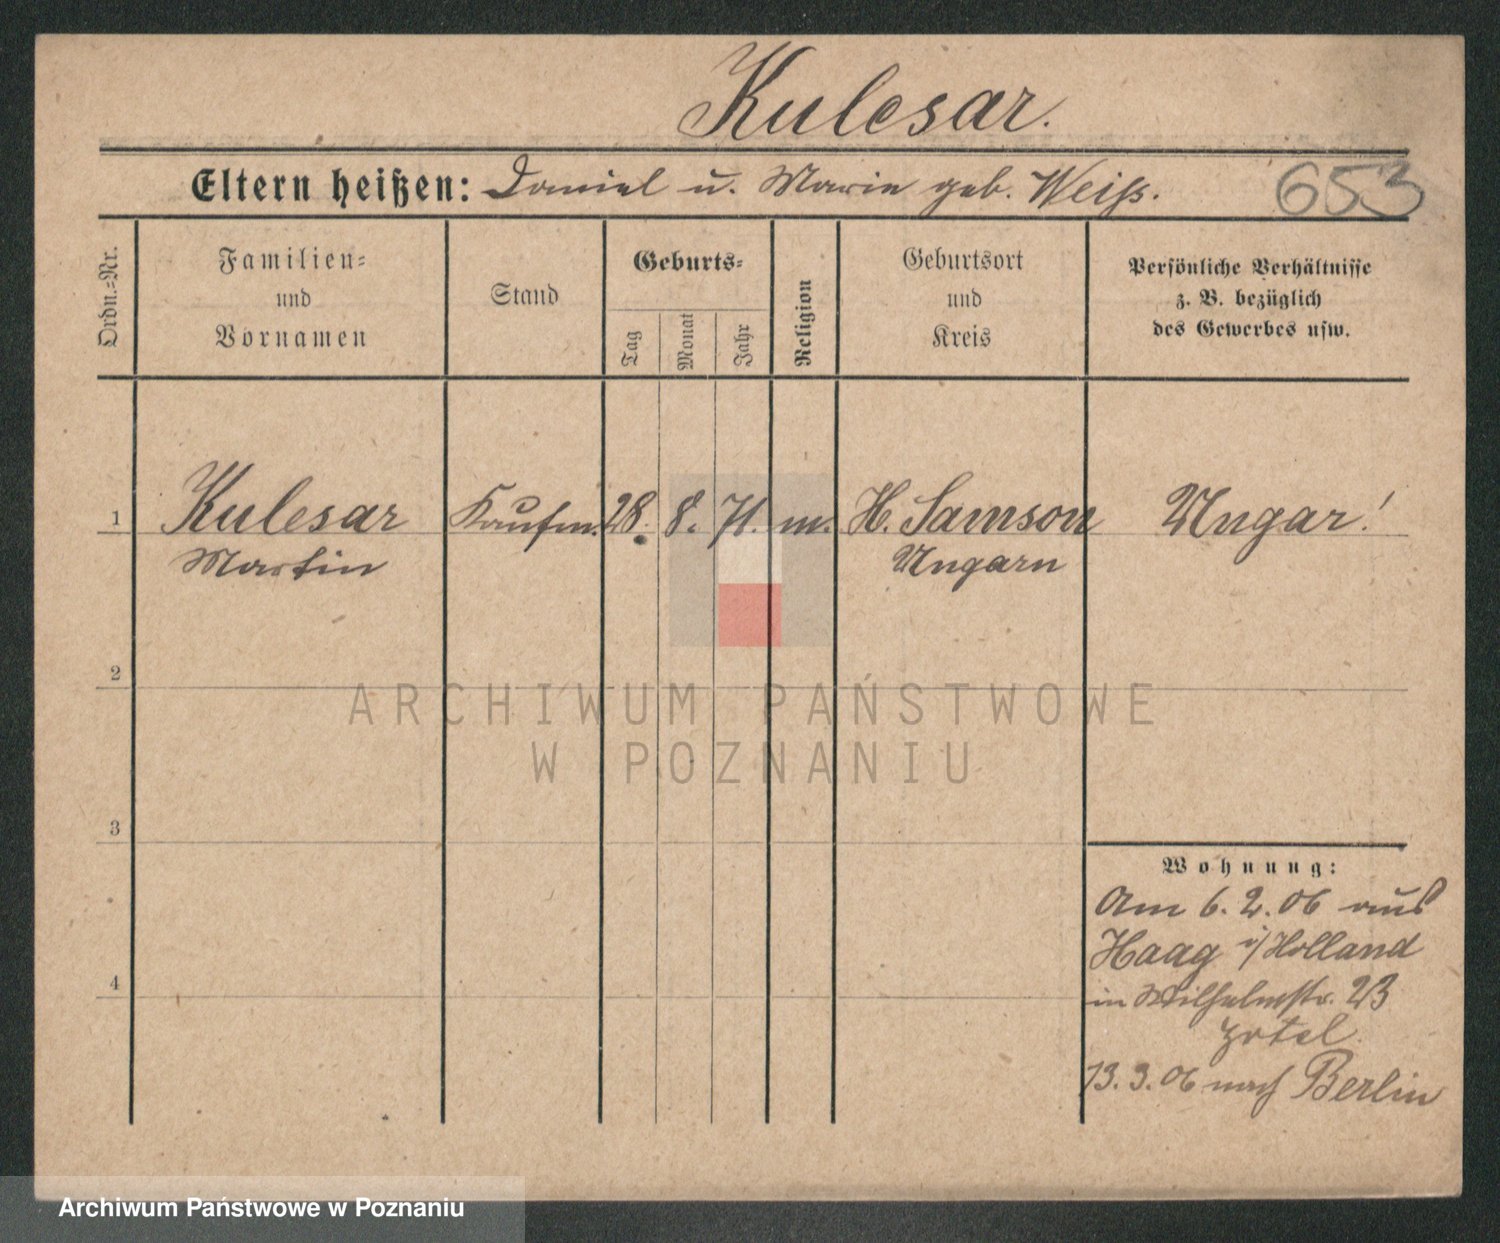 Kulesar.
Eltern heißen: Daniel u. Marie geb. Weiß.
653
Ordn.-Nr.
Familien-
und
Vornamen
Stand
Geburts-
Tag
Monat
Jahr
Religion
Geburtsort
und
Kreis
Persönliche Verhältnisse
z. B. bezüglich
des Gewerbes usw.
1 Kulesar Kaufm. 28. 8. 71. m. H. Samson Ungar!
Martin Ungarn
2
ARCHIWUM PAŃSTWOWE
W POZNANIU
3
Wohnung:
Am 6. 2. 06 aus
Haag i/Holland
4
in Wilhelmstr. 23
Hotel
13. 3. 06 nach Berlin
Archiwum Państwowe w Poznaniu